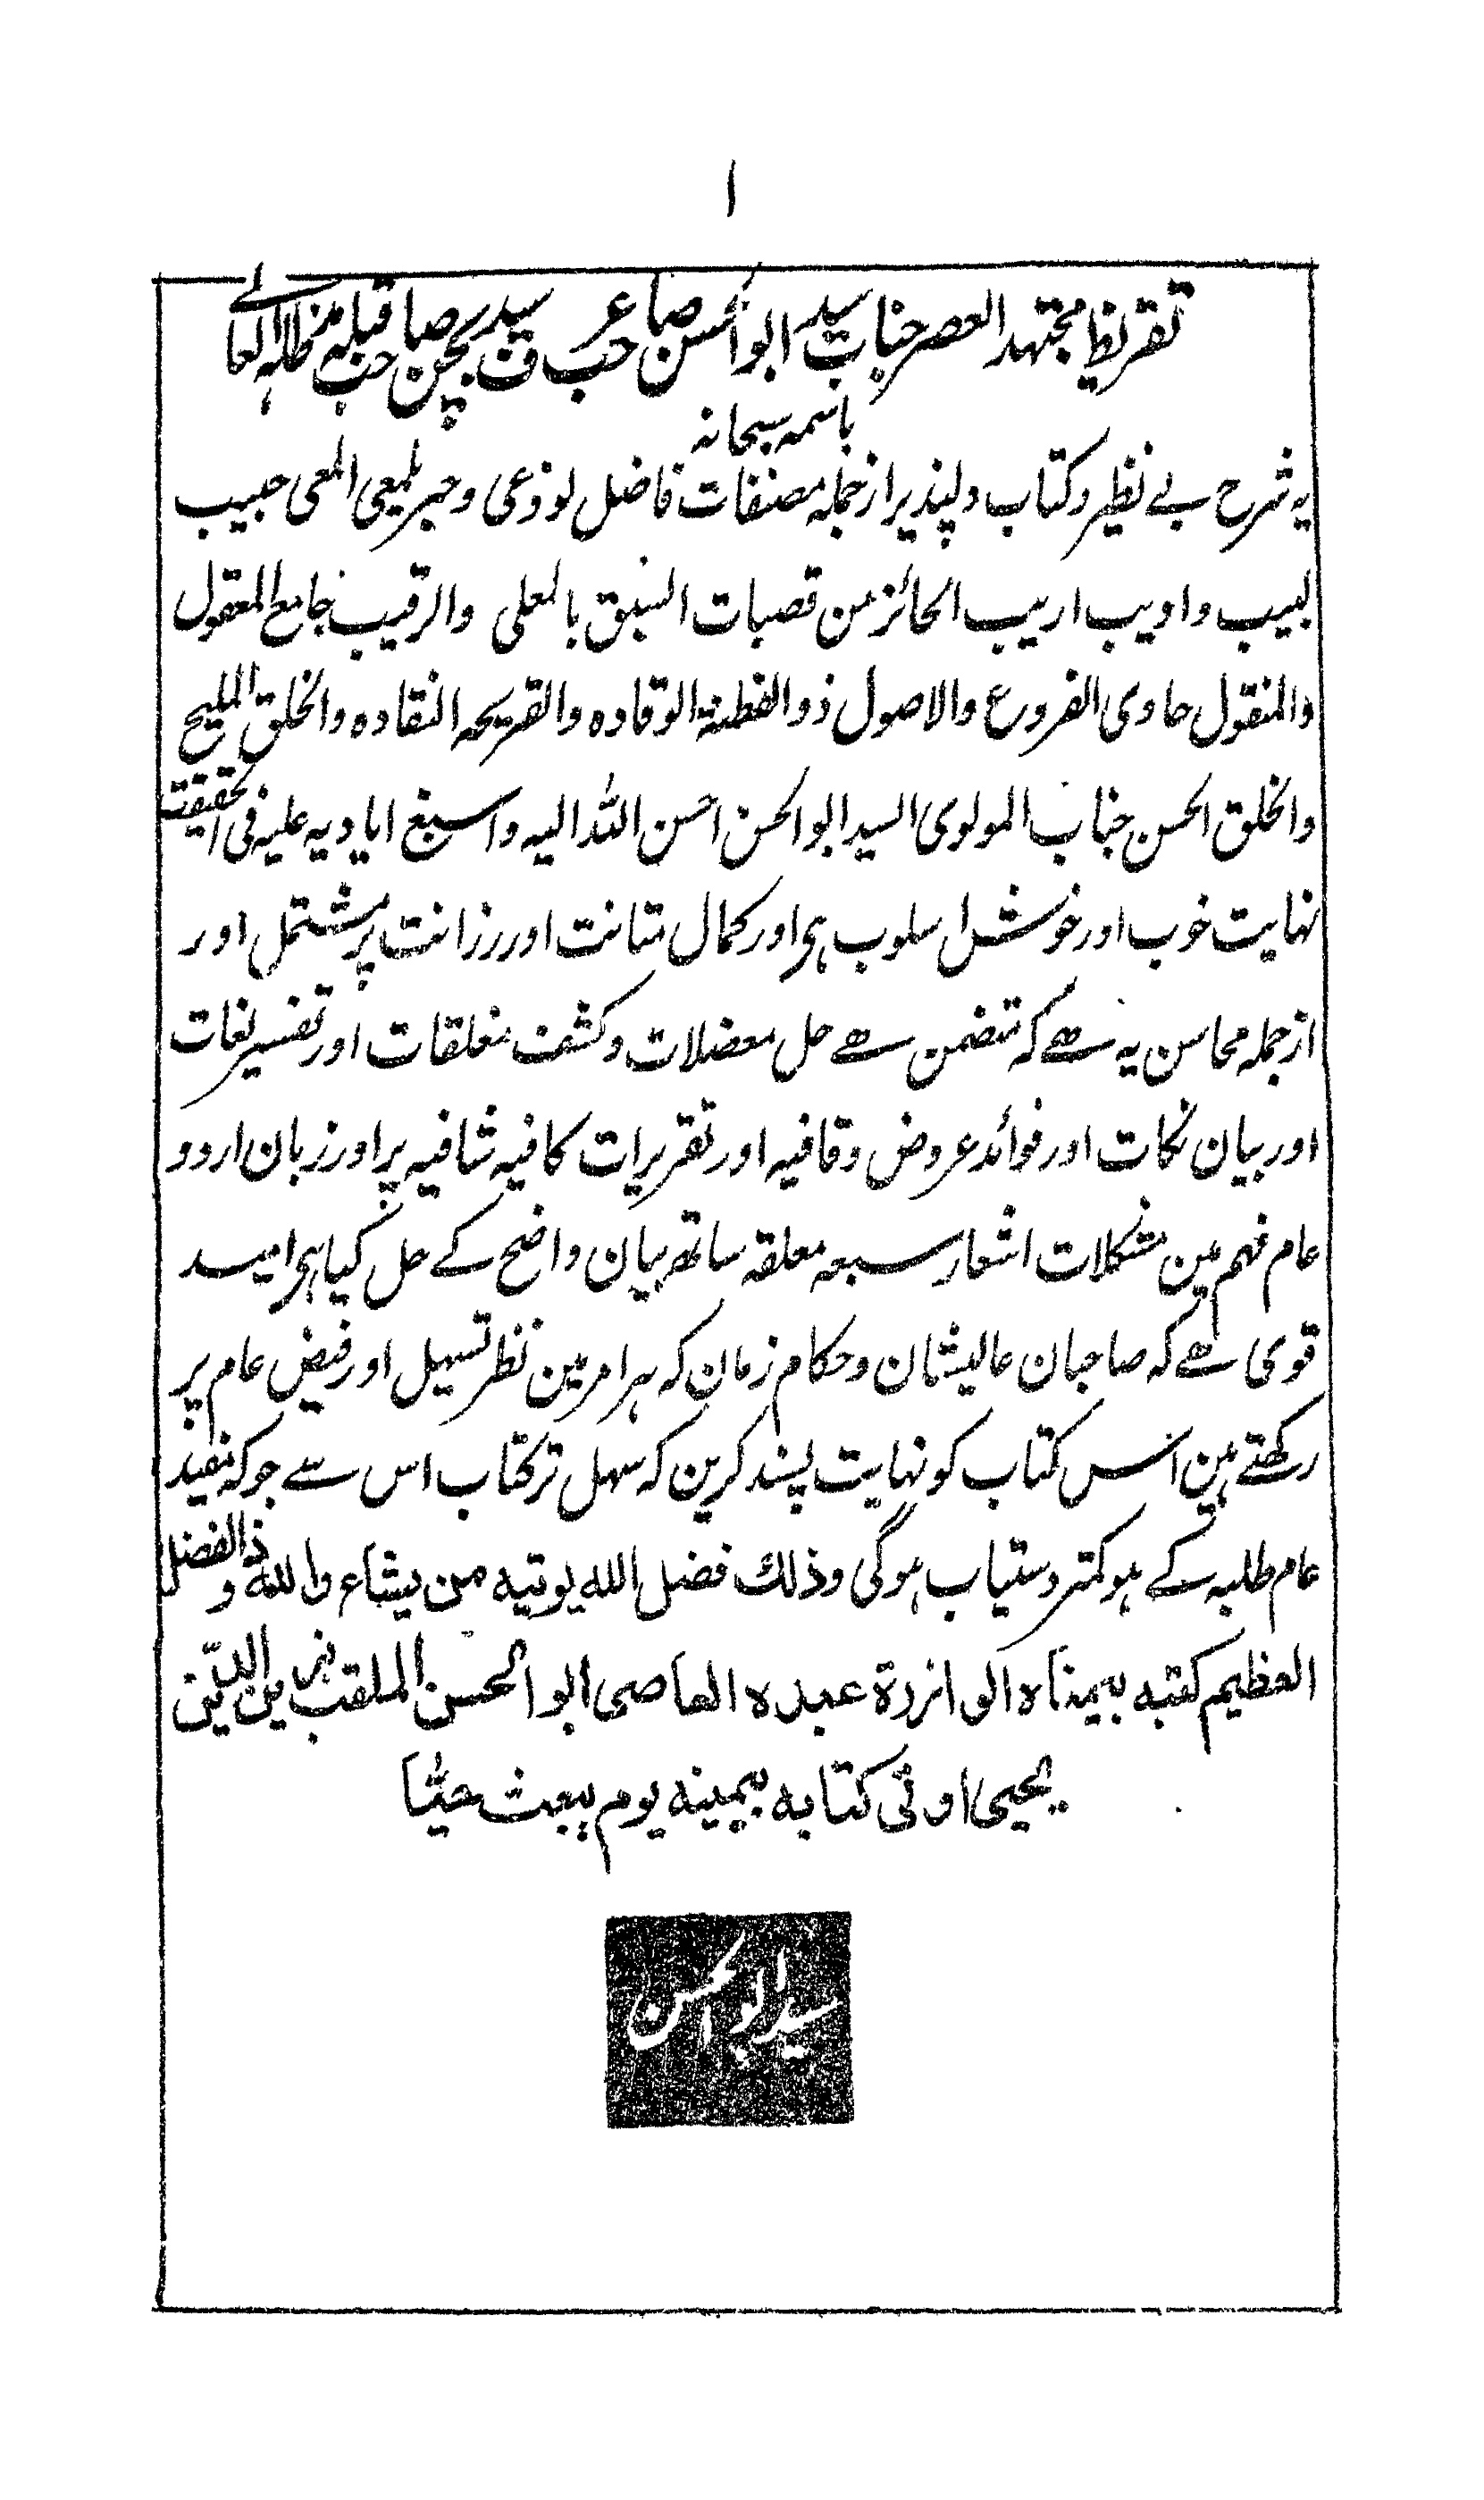 ۱
تقریظ مجتہد العصر جناب سید ابوالحسن صاحب عرف سید بچھن صاحب قبلہ مدظلہ العالے
باسمہ سبحانہ
یہ شرح بے نظیر و کتاب دلپذیر از جملہ مصنفات فاضل لوذعی و حبر یلمعی المعی حبیب
لبیب و ادیب اریب الحائز من قصبات السبق بالمعلی والرقیب جامع المعقول
والمنقول حاوی الفروع والاصول ذو الفطنۃ الوقادہ والقریحہ النقادہ والخلق الملیح
والخلق الحسن جناب المولوی السید ابوالحسن احسن اللہ الیہ واسبغ ایادیہ علیہ فی الحقیقت
نہایت خوب اور خوش اسلوب ہی اور کمال متانت اور رزانت پر مشتمل اور
از جملہ محاسن یہ ہے کہ متضمن ہے حل معضلات و کشف مغلقات اور تفسیر لغات
اور بیان نکات اور فوائد عروض و قافیہ اور تقریرات کافیہ شافیہ پر اور زبان اردو
عام فہم مین مشکلات اشعار سبعہ معلقہ ساتھ بیان واضح کے حل کیا ہی امید
قوی ہے کہ صاحبان عالیشان و حکام زمان کہ ہر امر مین نظر تسہیل اور فیض عام پر
رکھتے ہین اس کتاب کو نہایت پسند کرین کہ سہل تر کتاب اس سے جو کہ مفید
عام طلبہ کے ہو کمتر دستیاب ہوگی وذلك فضل الله يوتيه من يشاء والله ذو الفضل
العظيم كتبه بيمناه الوازرة عبده العاصى ابو الحسن الملقب بزين الدين
يحيى اوتى كتابه بيمينه يوم يبعث حيّا
سید ابوالحسن